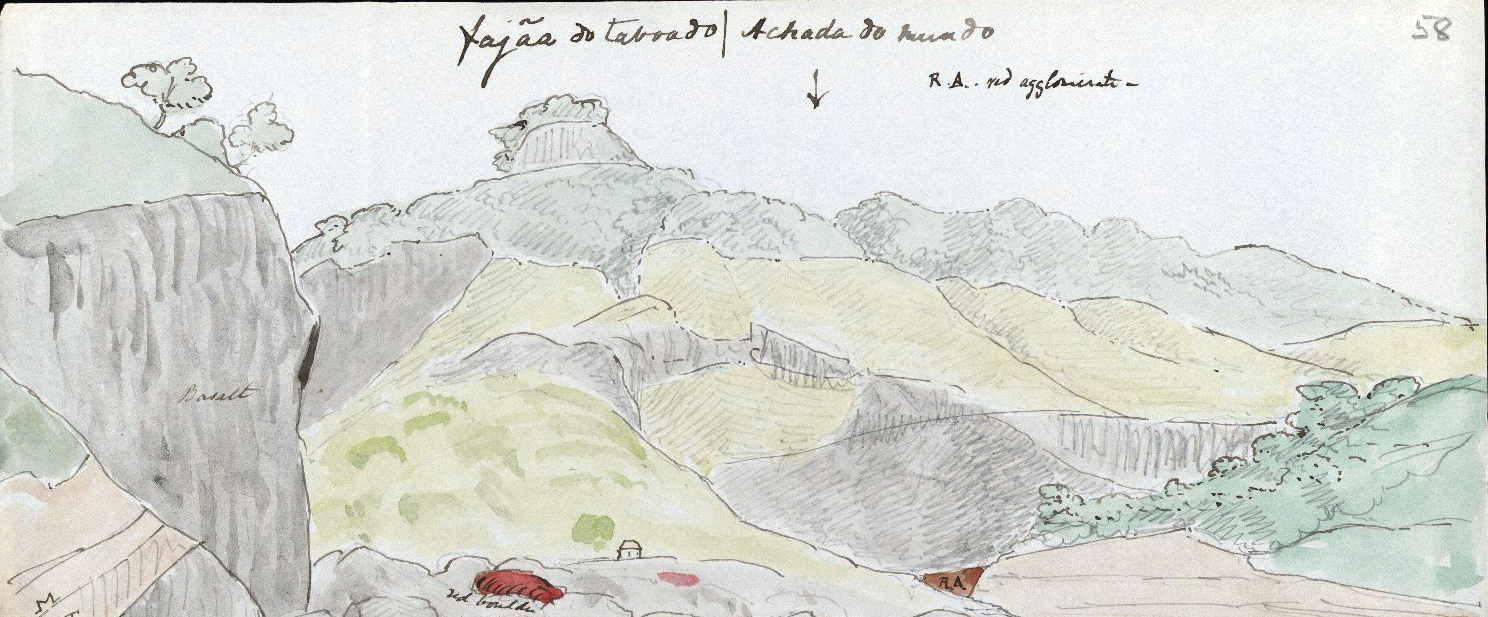 Fajãa do taboado | Achada do mundo
58
R.A. red agglomerate -
Basalt
red boulder
R.A.